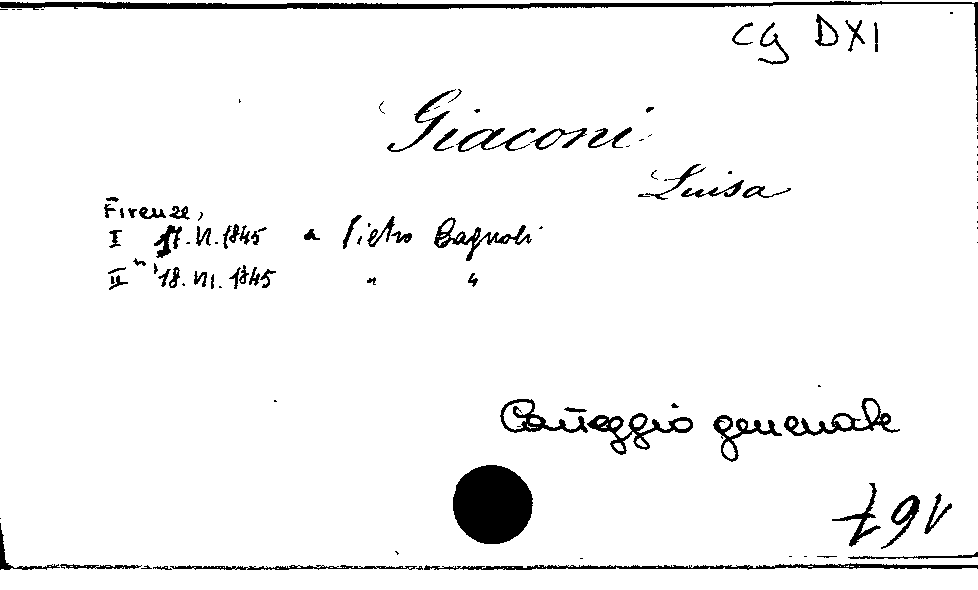 CG DXI
Giaconi
Luisa
Firenze,
I 17.VI.1845 a Pietro Bagnoli
II " 18.VI.1845 " "
Carteggio generale
167